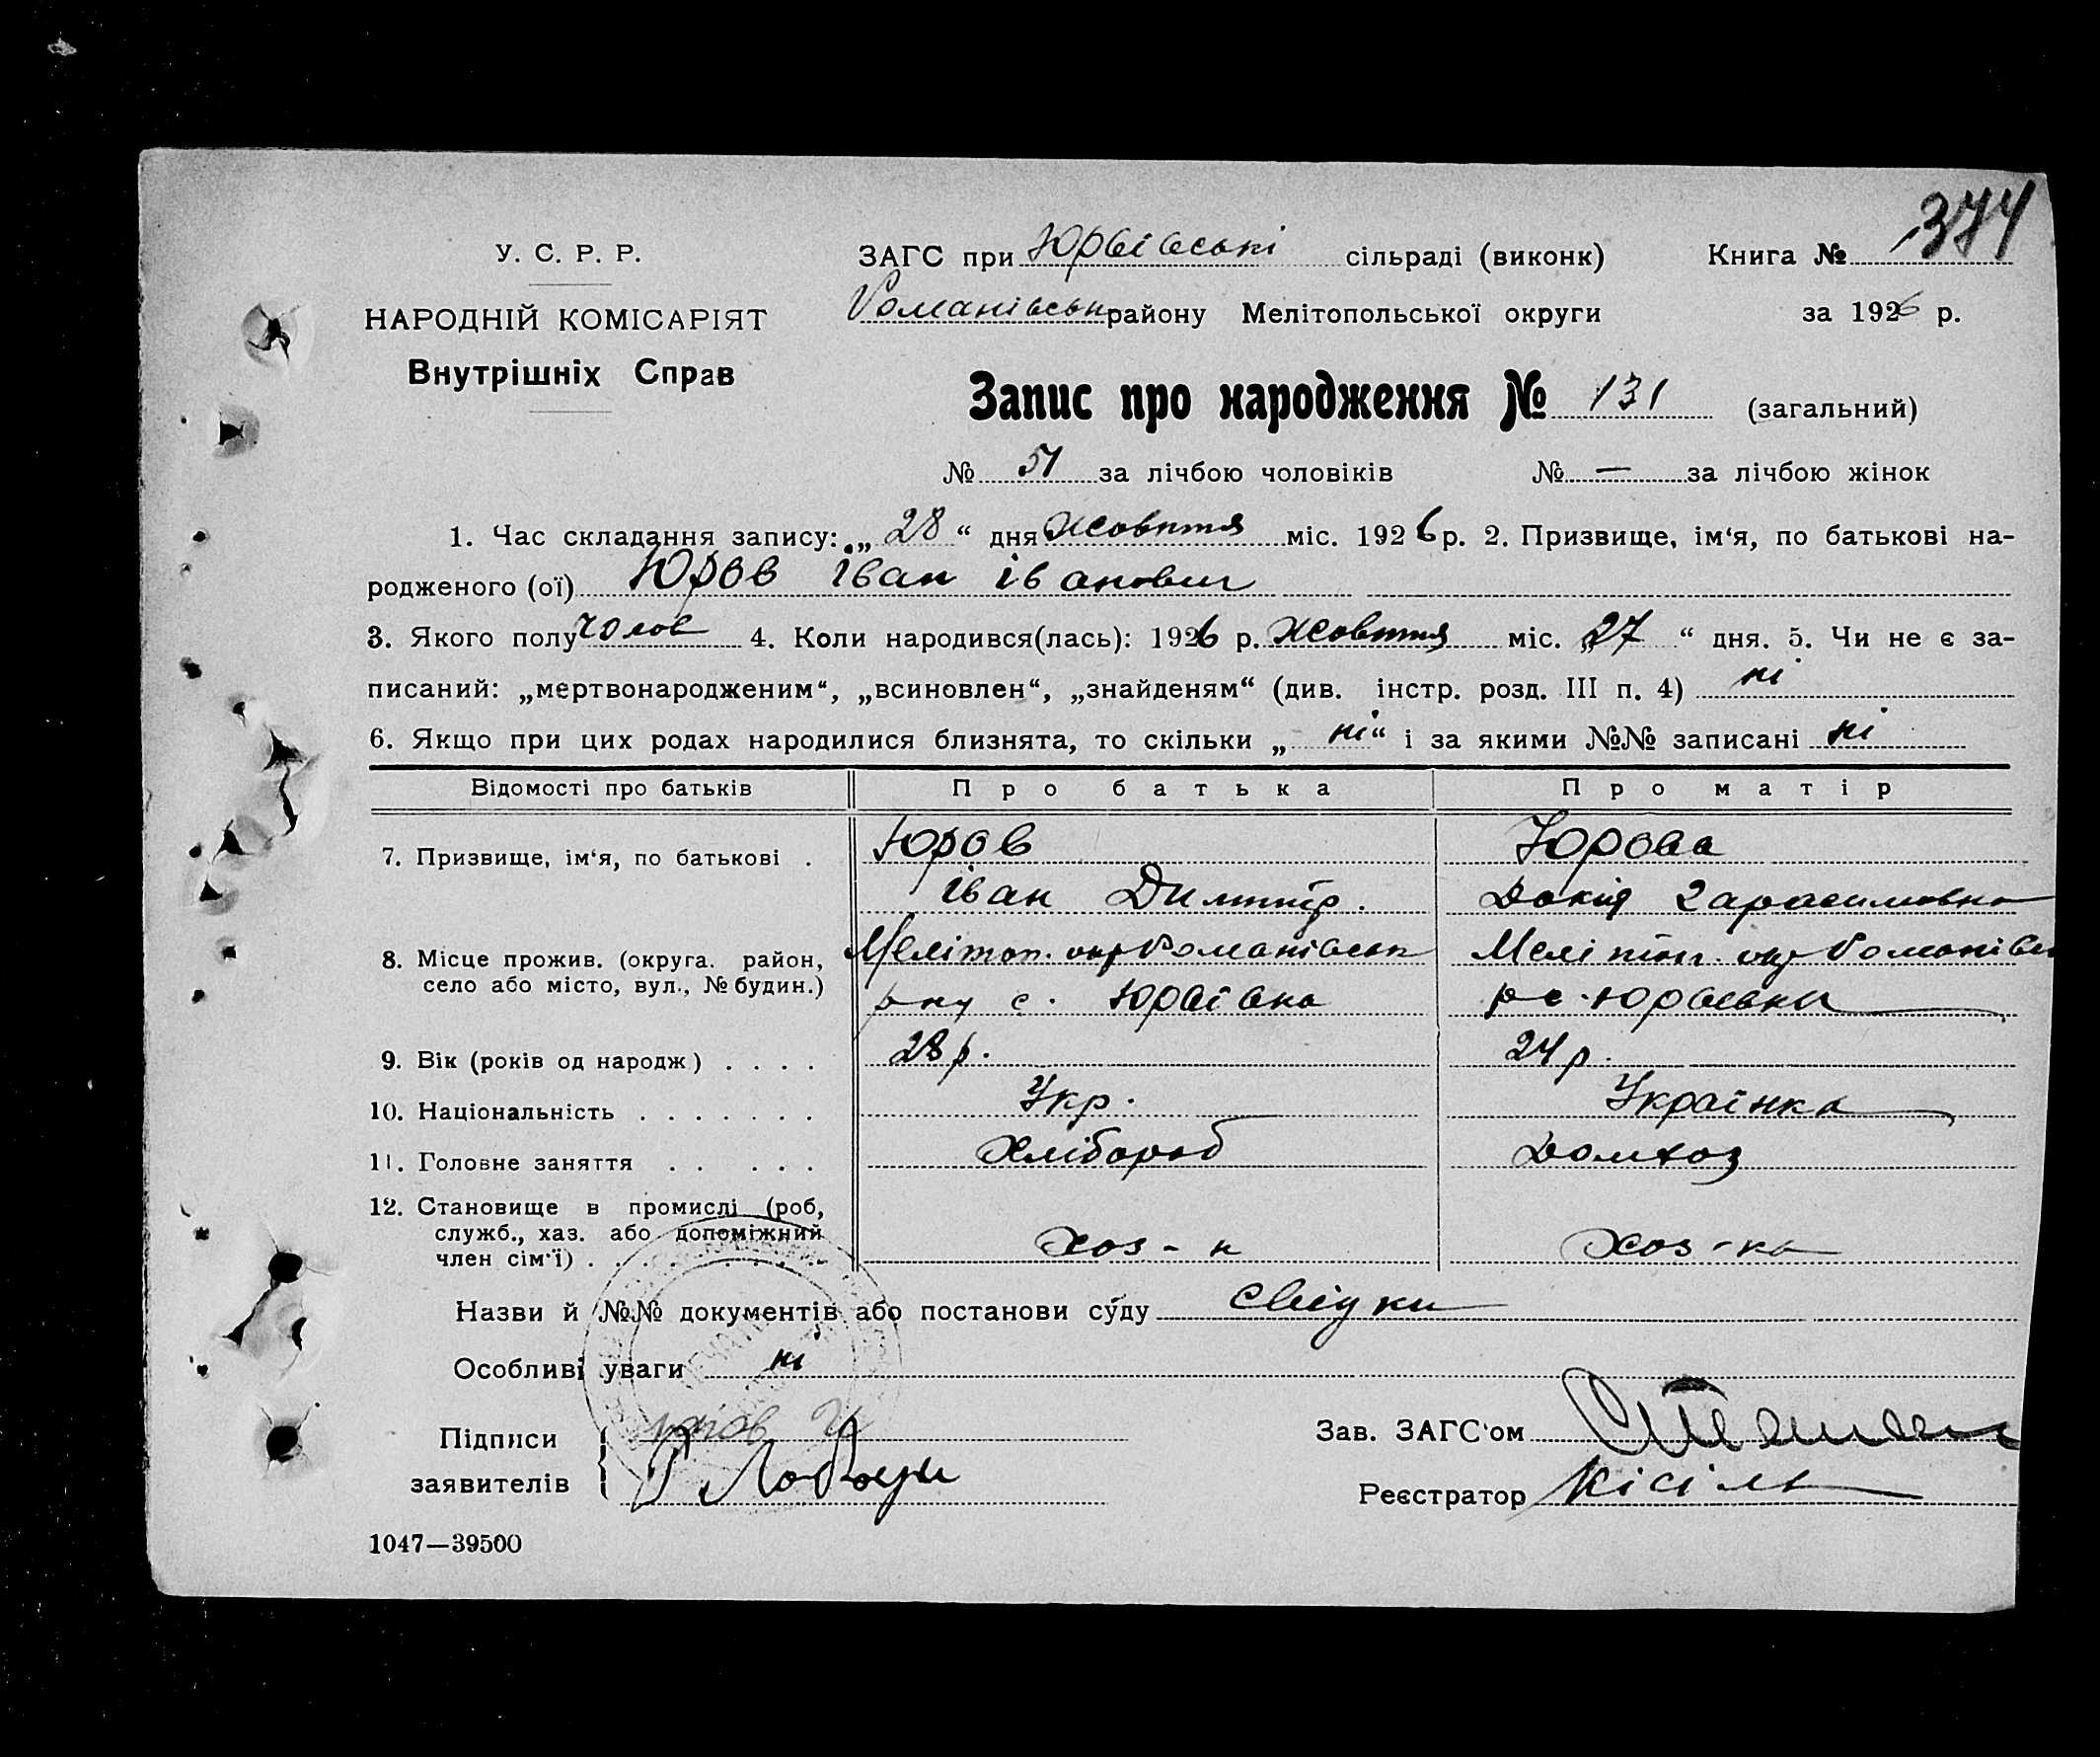 374
У. С. Р. Р.
ЗАГС при Юрвівські сільраді (виконк) Книга №
НАРОДНІЙ КОМІСАРІЯТ
Романівськ району Мелітопольської округи за 1926 р.
Внутрішніх Справ
Запис про народження № 131 (загальний)
№ 51 за лічбою чоловіків № — за лічбою жінок
1. Час складання запису: „ 28 “ дня жовтня міс. 1926 р. 2. Призвище, ім‘я, по батькові на-
родженого (ої) Юров Іван Іванович
3. Якого полу чолов 4. Коли народився(лась): 1926 р. жовтня міс. „27 “ дня. 5. Чи не є за-
писаний: „мертвонародженим“, „всиновлен“, „знайденям“ (див. інстр. розд. III п. 4) ні
6. Якщо при цих родах народилися близнята, то скільки „ ні “ і за якими №№ записані ні
Відомості про батьків Про батька Про матір
7. Призвище, ім‘я, по батькові . Юров Юрова
Іван Дмитр. Докія Гарасимовна
8. Місце прожив. (округа. район, Меліт��п. окр Романівськ Мелітоп. окр Романівсь
село або місто, вул., № будин.) рну с. Юрвівка р с. Юрвевки
9. Вік (років од народж) . . . . 28 р. 24 р.
10. Національність . . . . . . . Укр. Українка
11. Головне заняття . . . . . Хлібороб Домхоз
12. Становище в промислі (роб,
служб., хаз. або допоміжний
член сім‘ї) . . . . . . . . Хоз-н Хоз-ка
Назви й №№ документів або постанови суду свідки
Особливі уваги ні
Підписи Юров
заявителів
Зав. ЗАГС‘ом
Реєстратор Кісіль
1047—39500